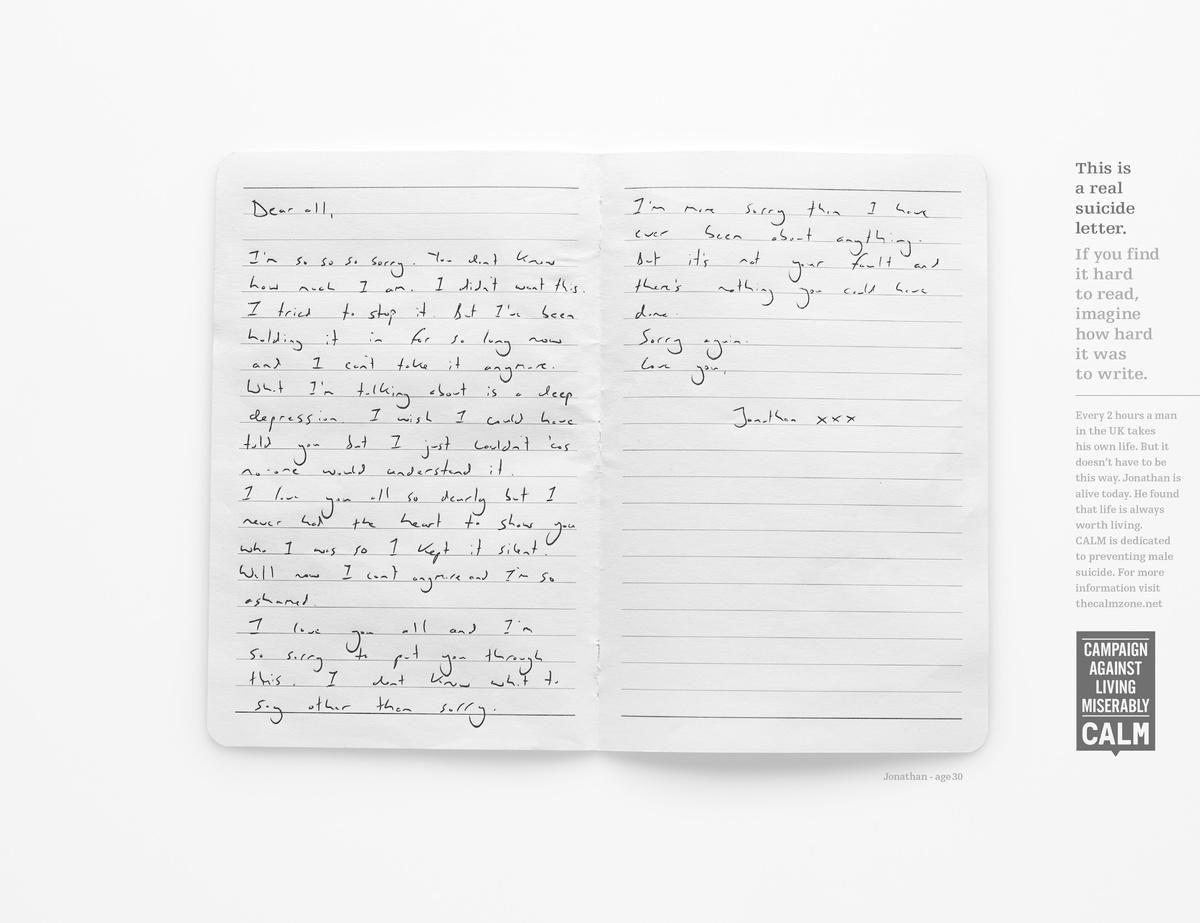 Dear all,
I'm so so so sorry. You dont know
how much I am. I didn't want this.
I tried to stop it. But I've been
holding it in for so long now
and I can't take it anymore.
What I'm talking about is a deep
depression. I wish I could have
told you but I just couldn't 'cos
no-one would understand it.
I love you all so dearly but I
never had the heart to show you
who I was so I kept it silent.
Well now I can't anymore and I'm so
ashamed.
I love you all and I'm
so sorry to put you through
this. I dont know what to
say other than sorry.
I'm more sorry than I have
ever been about anything.
But it's not your fault and
there's nothing you could have
done.
Sorry again.
Love you,
Jonathan xxx
Jonathan - age 30
This is
a real
suicide
letter.
If you find
it hard
to read,
imagine
how hard
it was
to write.
Every 2 hours a man
in the UK takes
his own life. But it
doesn't have to be
this way. Jonathan is
alive today. He found
that life is always
worth living.
CALM is dedicated
to preventing male
suicide. For more
information visit
thecalmzone.net
CAMPAIGN
AGAINST
LIVING
MISERABLY
CALM